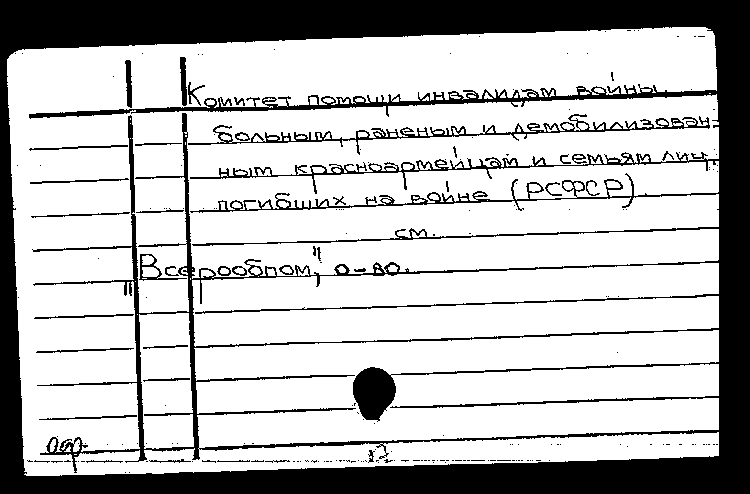 Комитет помощи инвалидам войны,
больным, раненым и демобилизован-
ным красноармейцам и семьям лиц,
погибших на войне (РСФСР)
см.
"Всерообпом", о-во.